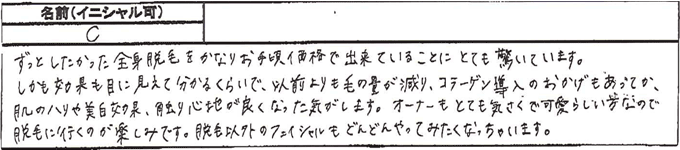 名前(イニシャル可)
C
ずっとしたかった全身脱毛をかなりお手頃価格で出来ていることにとても驚いています。
しかも効果も目に見えて分かるくらいで、以前よりも毛の量が減り、コラーゲン導入のおかげもあってか、
肌のハリや美白効果、触り心地が良くなった気がします。オーナーもとても気さくで可愛らしい方なので
脱毛に行くのが楽しみです。脱毛以外のフェイシャルもどんどんやってみたくなっちゃいます。